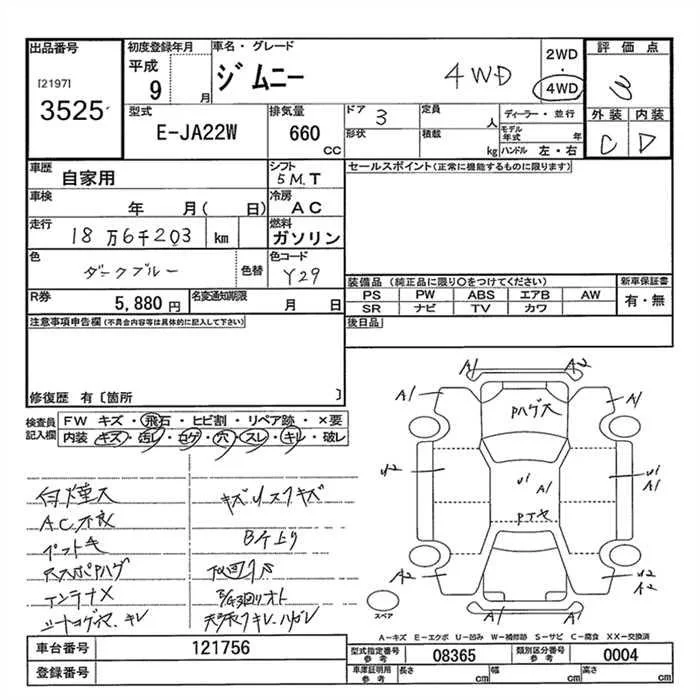 出品番号
[2197]
3525
初度登録年月
平成
9 月
車名・グレード
ジムニー 4WD
2WD
・
4WD
評価点
3
外装 内装
C D
型式
E-JA22W
排気量
660
CC
ドア 3
形状
定員 人
積載 kg
ディーラー・並行
モデル年式 年
ハンドル 左・右
車歴
自家用
シフト
5M.T
車検
年 月( 日)
冷房
AC
走行
18万6千203 km
燃料
ガソリン
色
ダークブルー
色替
色コード
Y29
R券
5,880 円
名変通知期限
月 日
セールスポイント(正常に機能するものに限ります)
装備品 (純正品に限り○をつけてください)
新車保証書
PS PW ABS エアB AW
有・無
SR ナビ TV カワ
後日品
注意事項申告欄(不具合内容等は具体的に記入して下さい)
修復歴 有〔箇所 〕
検査員
記入欄
FW キズ・飛石・ヒビ割・リペア跡・×要
内装 キズ・汚レ・コゲ・穴・スレ・キレ・破レ
白煙大
AC不良
ペット毛
アンテナX
キズリスクキズ
B下上り
A1 A2
A1 A1
Pハゲ大
U2
U1
A1
U1
A1
A2
U2
A2
A1 A2
スペア
A-キズ E-エクボ U-凹み W-補修跡 S-サビ C-腐食 XX-交換済
車台番号
121756
登録番号
型式指定番号
参考
08365
類別区分番号
参考
0004
車庫証明用
参考
長さ cm
幅 cm
高さ cm